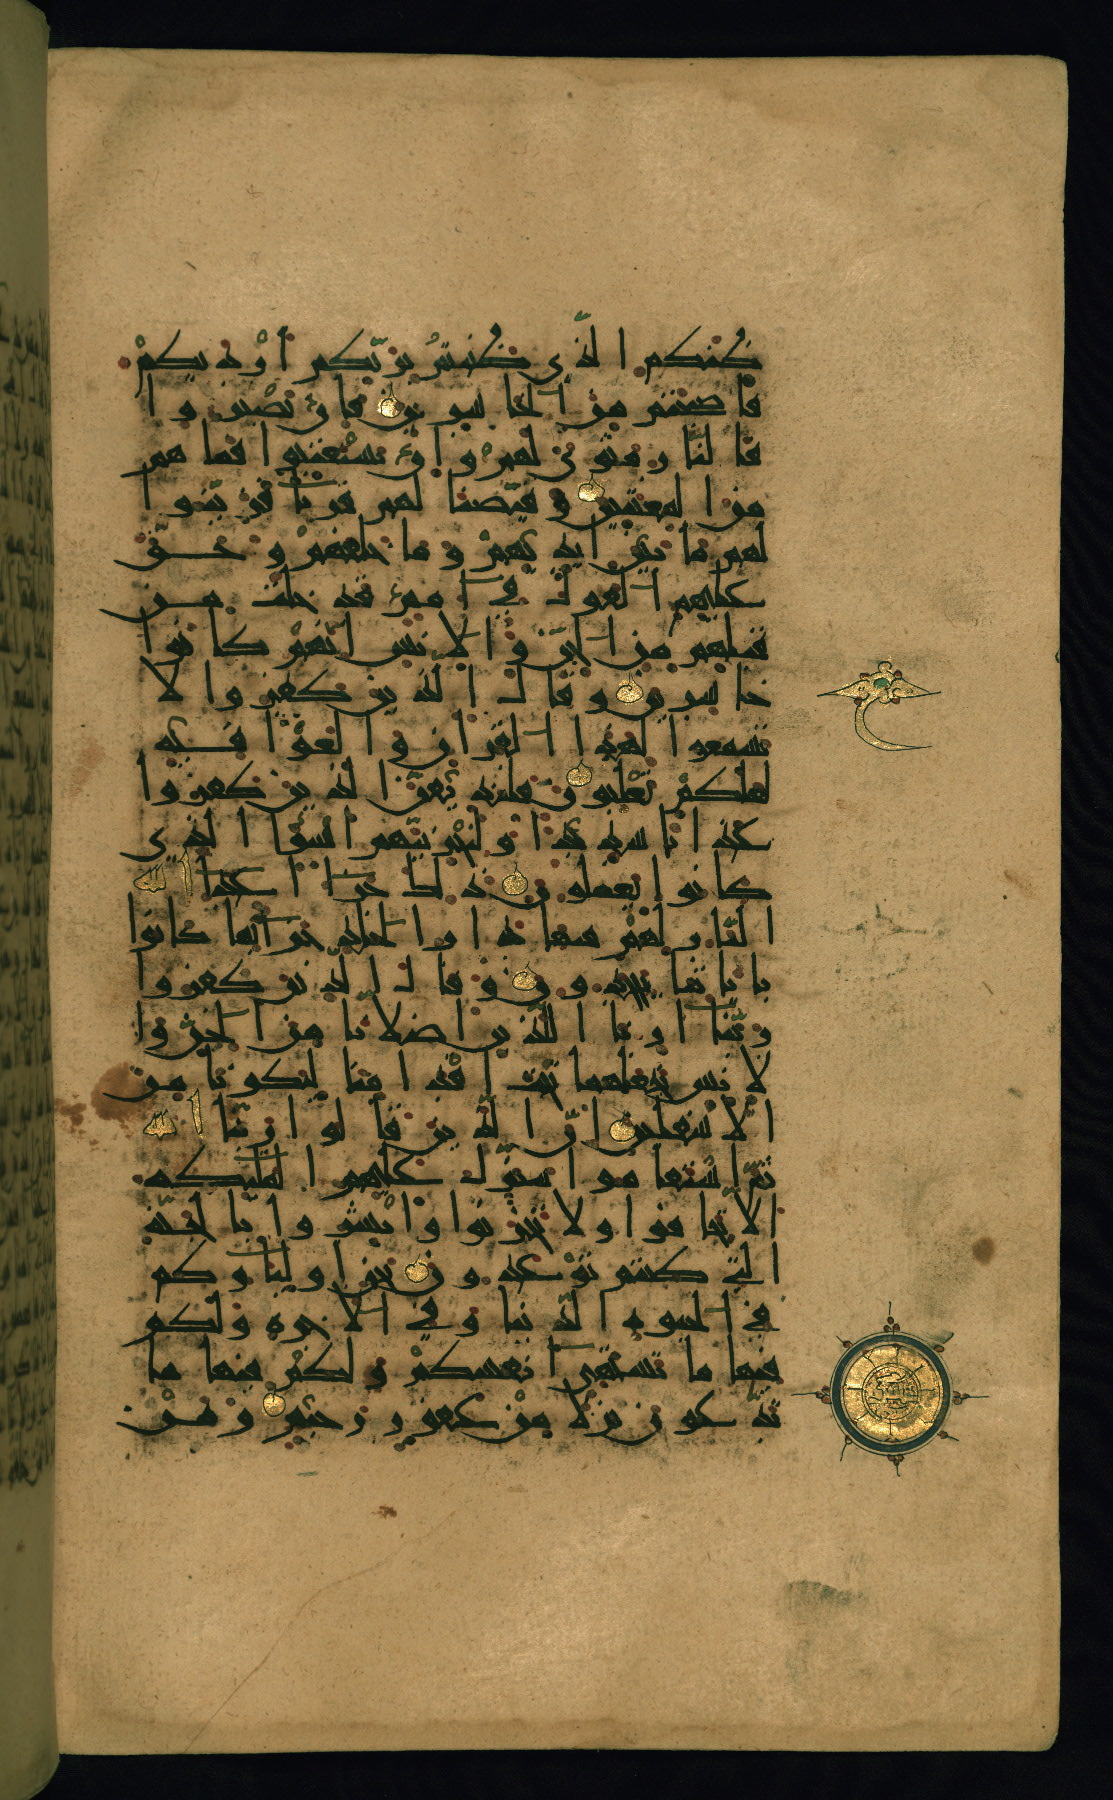 ظنكم الذي ظننتم بربكم أرديكم
فأصبحتم من الخاسرين فإن يصبروا
فالنار مثوى لهم وإن يستعتبوا فما هم
من المعتبين وقيضنا لهم قرناء فزينوا
لهم ما بين أيديهم وما خلفهم وحق
عليهم القول في أمم قد خلت من
قبلهم من الجن والإنس إنهم كانوا
خاسرين وقال الذين كفروا لا
تسمعوا لهذا القرآن والغوا فيه
لعلكم تغلبون فلنذيقن الذين كفروا
عذابا شديدا ولنجزينهم أسوأ الذي
كانوا يعملون ذلك جزاء أعداء الله
النار لهم فيها دار الخلد جزاء بما كانوا
بآياتنا يجحدون وقال الذين كفروا
ربنا أرنا الذين أضلانا من الجن وا
لإنس نجعلهما تحت أقدامنا ليكونا من
الأسفلين إن الذين قالوا ربنا الله
ثم استقاموا تتنزل عليهم الملئكة
ألا تخافوا ولا تحزنوا وأبشروا بالجنة
التي كنتم توعدون نحن أولياؤكم
في الحيوة الدنيا وفي الآخرة ولكم
فيها ما تشتهي أنفسكم ولكم فيها ما
تدعون نزلا من غفور رحيم ومن